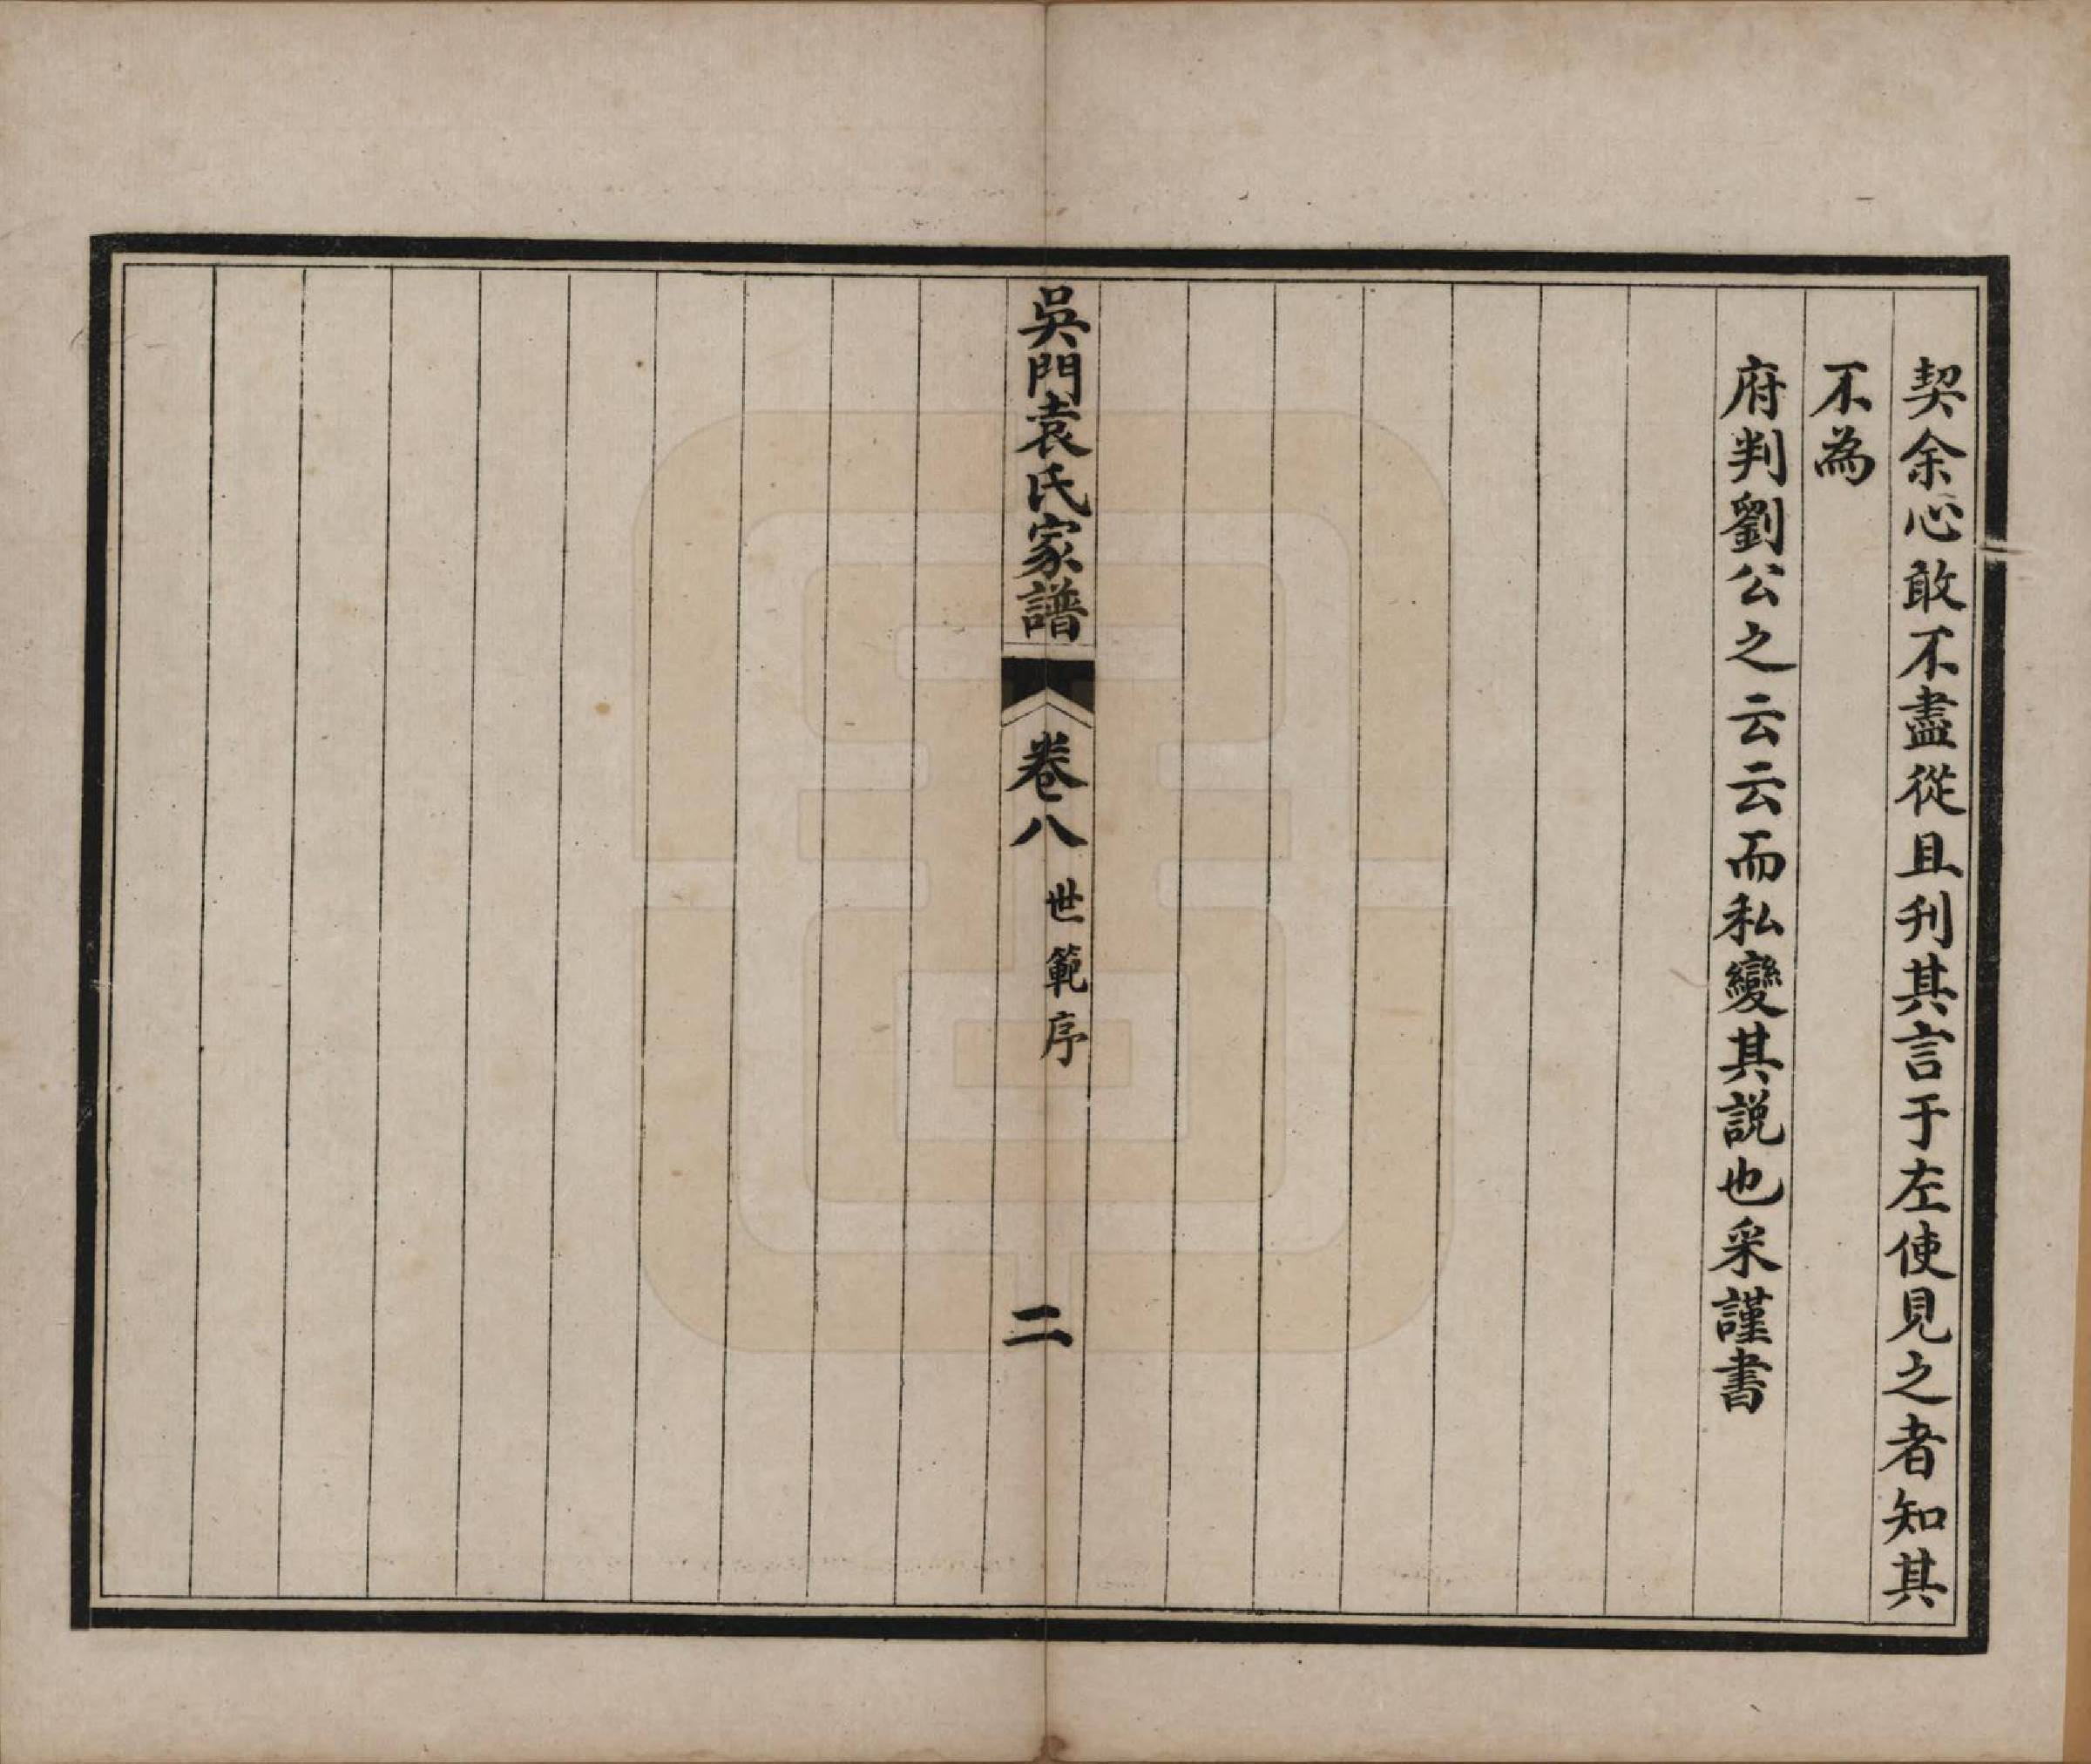 契余心敢不盡從且刊其言于左使見之者知其
不為
府判劉公之云云而私變其説也采謹書
吳門袁氏家譜
卷八
世範序
二